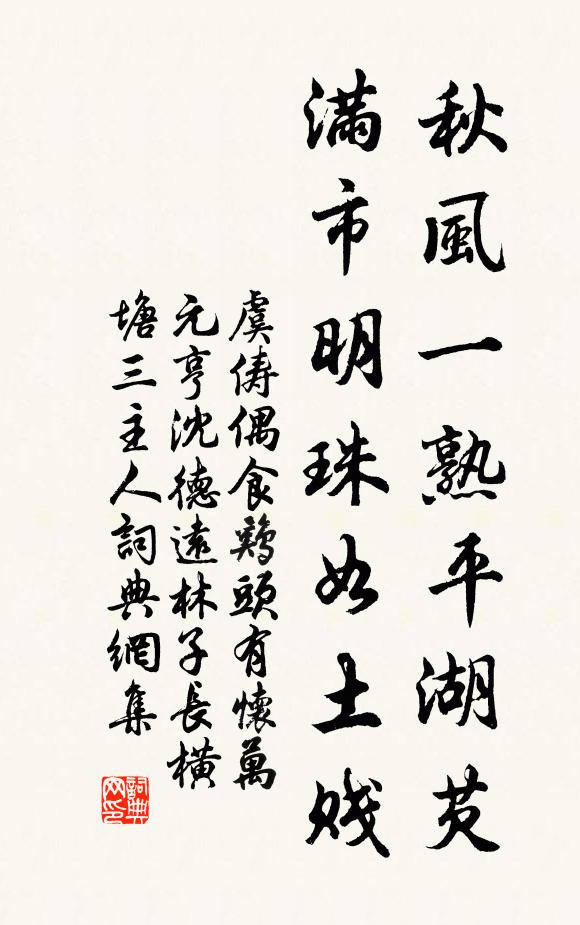 秋風一熟平湖芡
滿市明珠如土賤
虞儔偶食鷄頭有懷萬
元亨沈德遠林子長橫
塘三主人詞典網集
詞典網印